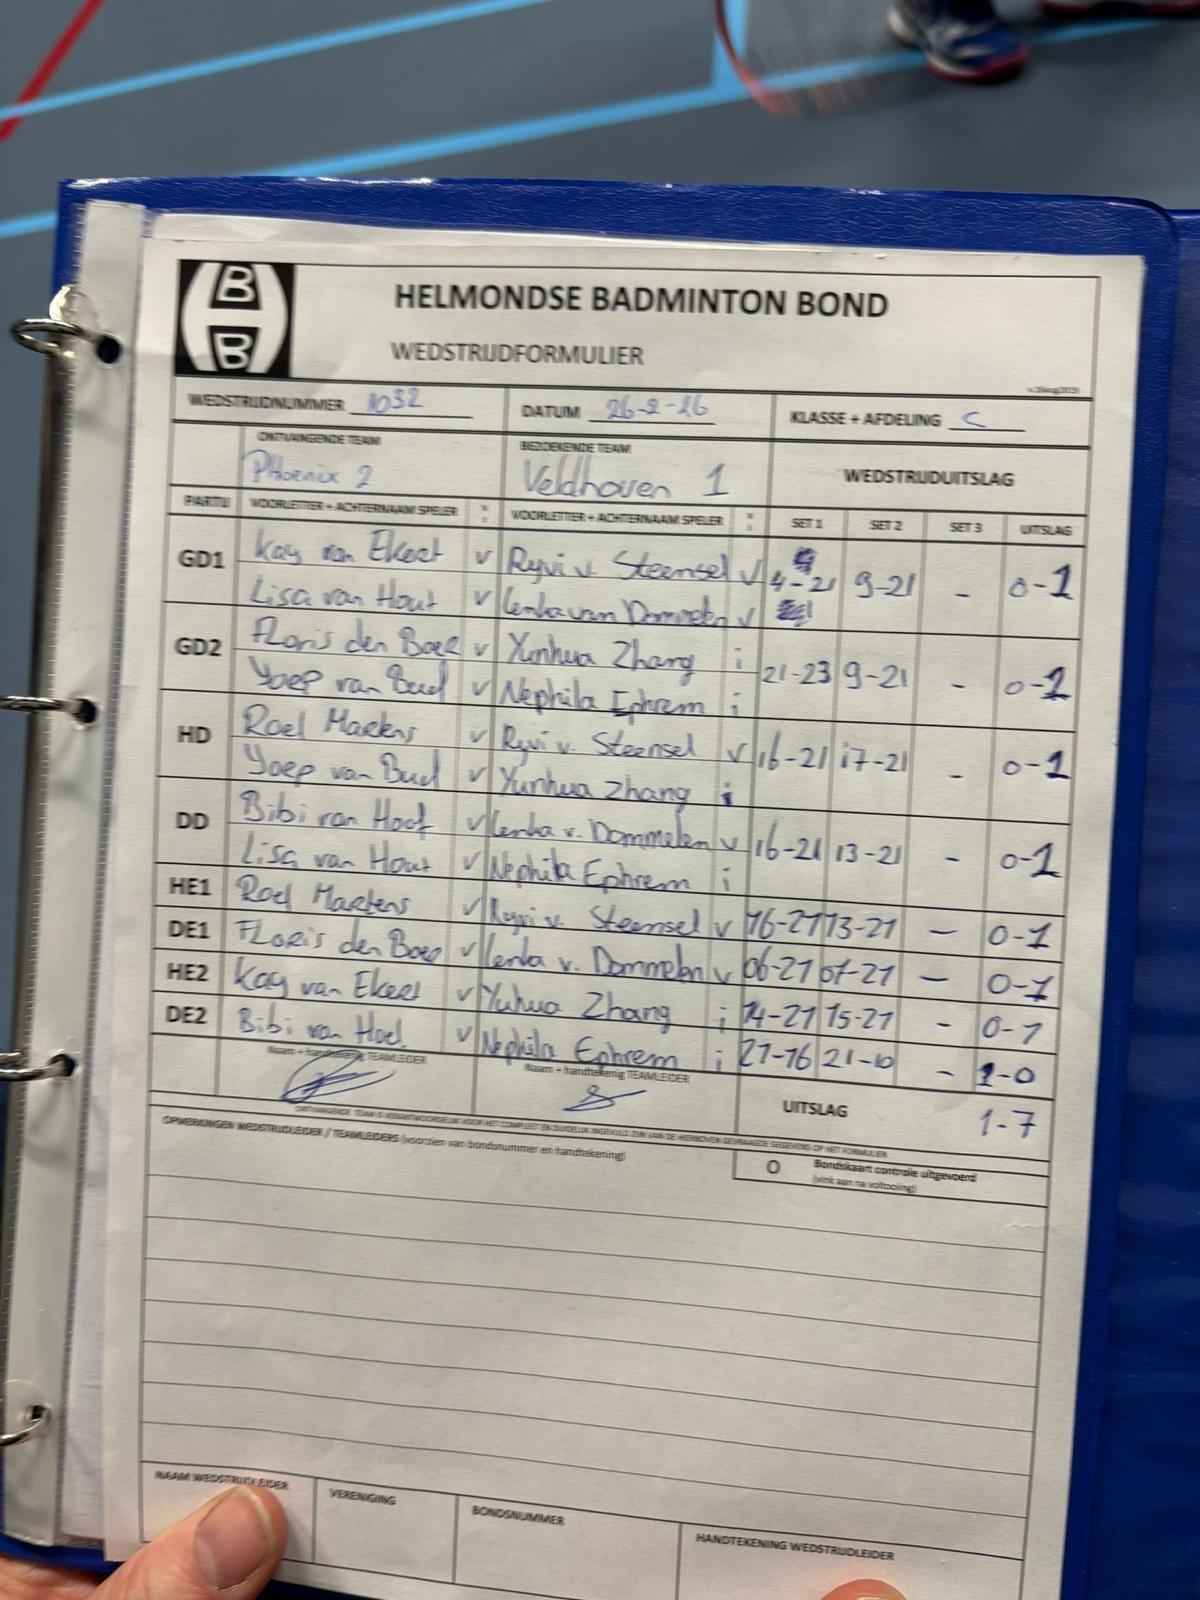 HELMONDSE BADMINTON BOND
WEDSTRIJDFORMULIER
WEDSTRIJDNUMMER 1032 DATUM 26-2-26 KLASSE + AFDELING C
ONTVANGENDE TEAM BEZOEKENDE TEAM WEDSTRIJDUITSLAG
PHoenix 2 Veldhoven 1
PARTIJ VOORLETTER + ACHTERNAAM SPELER VOORLETTER + ACHTERNAAM SPELER SET 1 SET 2 SET 3 UITSLAG
GD1 Kay van Ekert v Ryvi v. Steensel v 4-21 9-21 - 0-1
Lisa van Hout v Lenka van Dommelen v
GD2 Floris den Boer v Yunhua Zhang i 21-23 9-21 - 0-1
Yoep van Bud v Nephila Ephrem i
HD Roel Martens v Ryvi v. Steensel v 16-21 17-21 - 0-1
Yoep van Bud v Yunhua Zhang i
DD Bibi van Hoof v Lenka v. Dommelen v 16-21 13-21 - 0-1
Lisa van Hout v Nephila Ephrem i
HE1 Roel Martens v Ryvi v. Steensel v 16-21 13-21 - 0-1
DE1 Floris den Boer v Lenka v. Dommelen v 06-21 07-21 - 0-1
HE2 Kay van Ekert v Yuhua Zhang i 14-21 15-21 - 0-1
DE2 Bibi van Hoof v Nephila Ephrem i 21-16 21-10 - 1-0
Naam + handtekenig TEAMLEIDER Naam + handtekenig TEAMLEIDER
UITSLAG 1-7
ONTVANGENDE TEAM IS VERANTWOORDELIJK VOOR HET COMPLEET EN DUIDELIJK INGEVULD ZIJN VAN DE HIERBOVEN GEVRAAGDE GEGEVENS OP HET FORMULIER
OPMERKINGEN WEDSTRIJDLEIDER / TEAMLEIDERS (voorzien van bondsnummer en handtekening)
O Bondskaart controle uitgevoerd
(vink aan na voltooing)
NAAM WEDSTRIJDLEIDER VERENIGING BONDSNUMMER HANDTEKENING WEDSTRIJDLEIDER